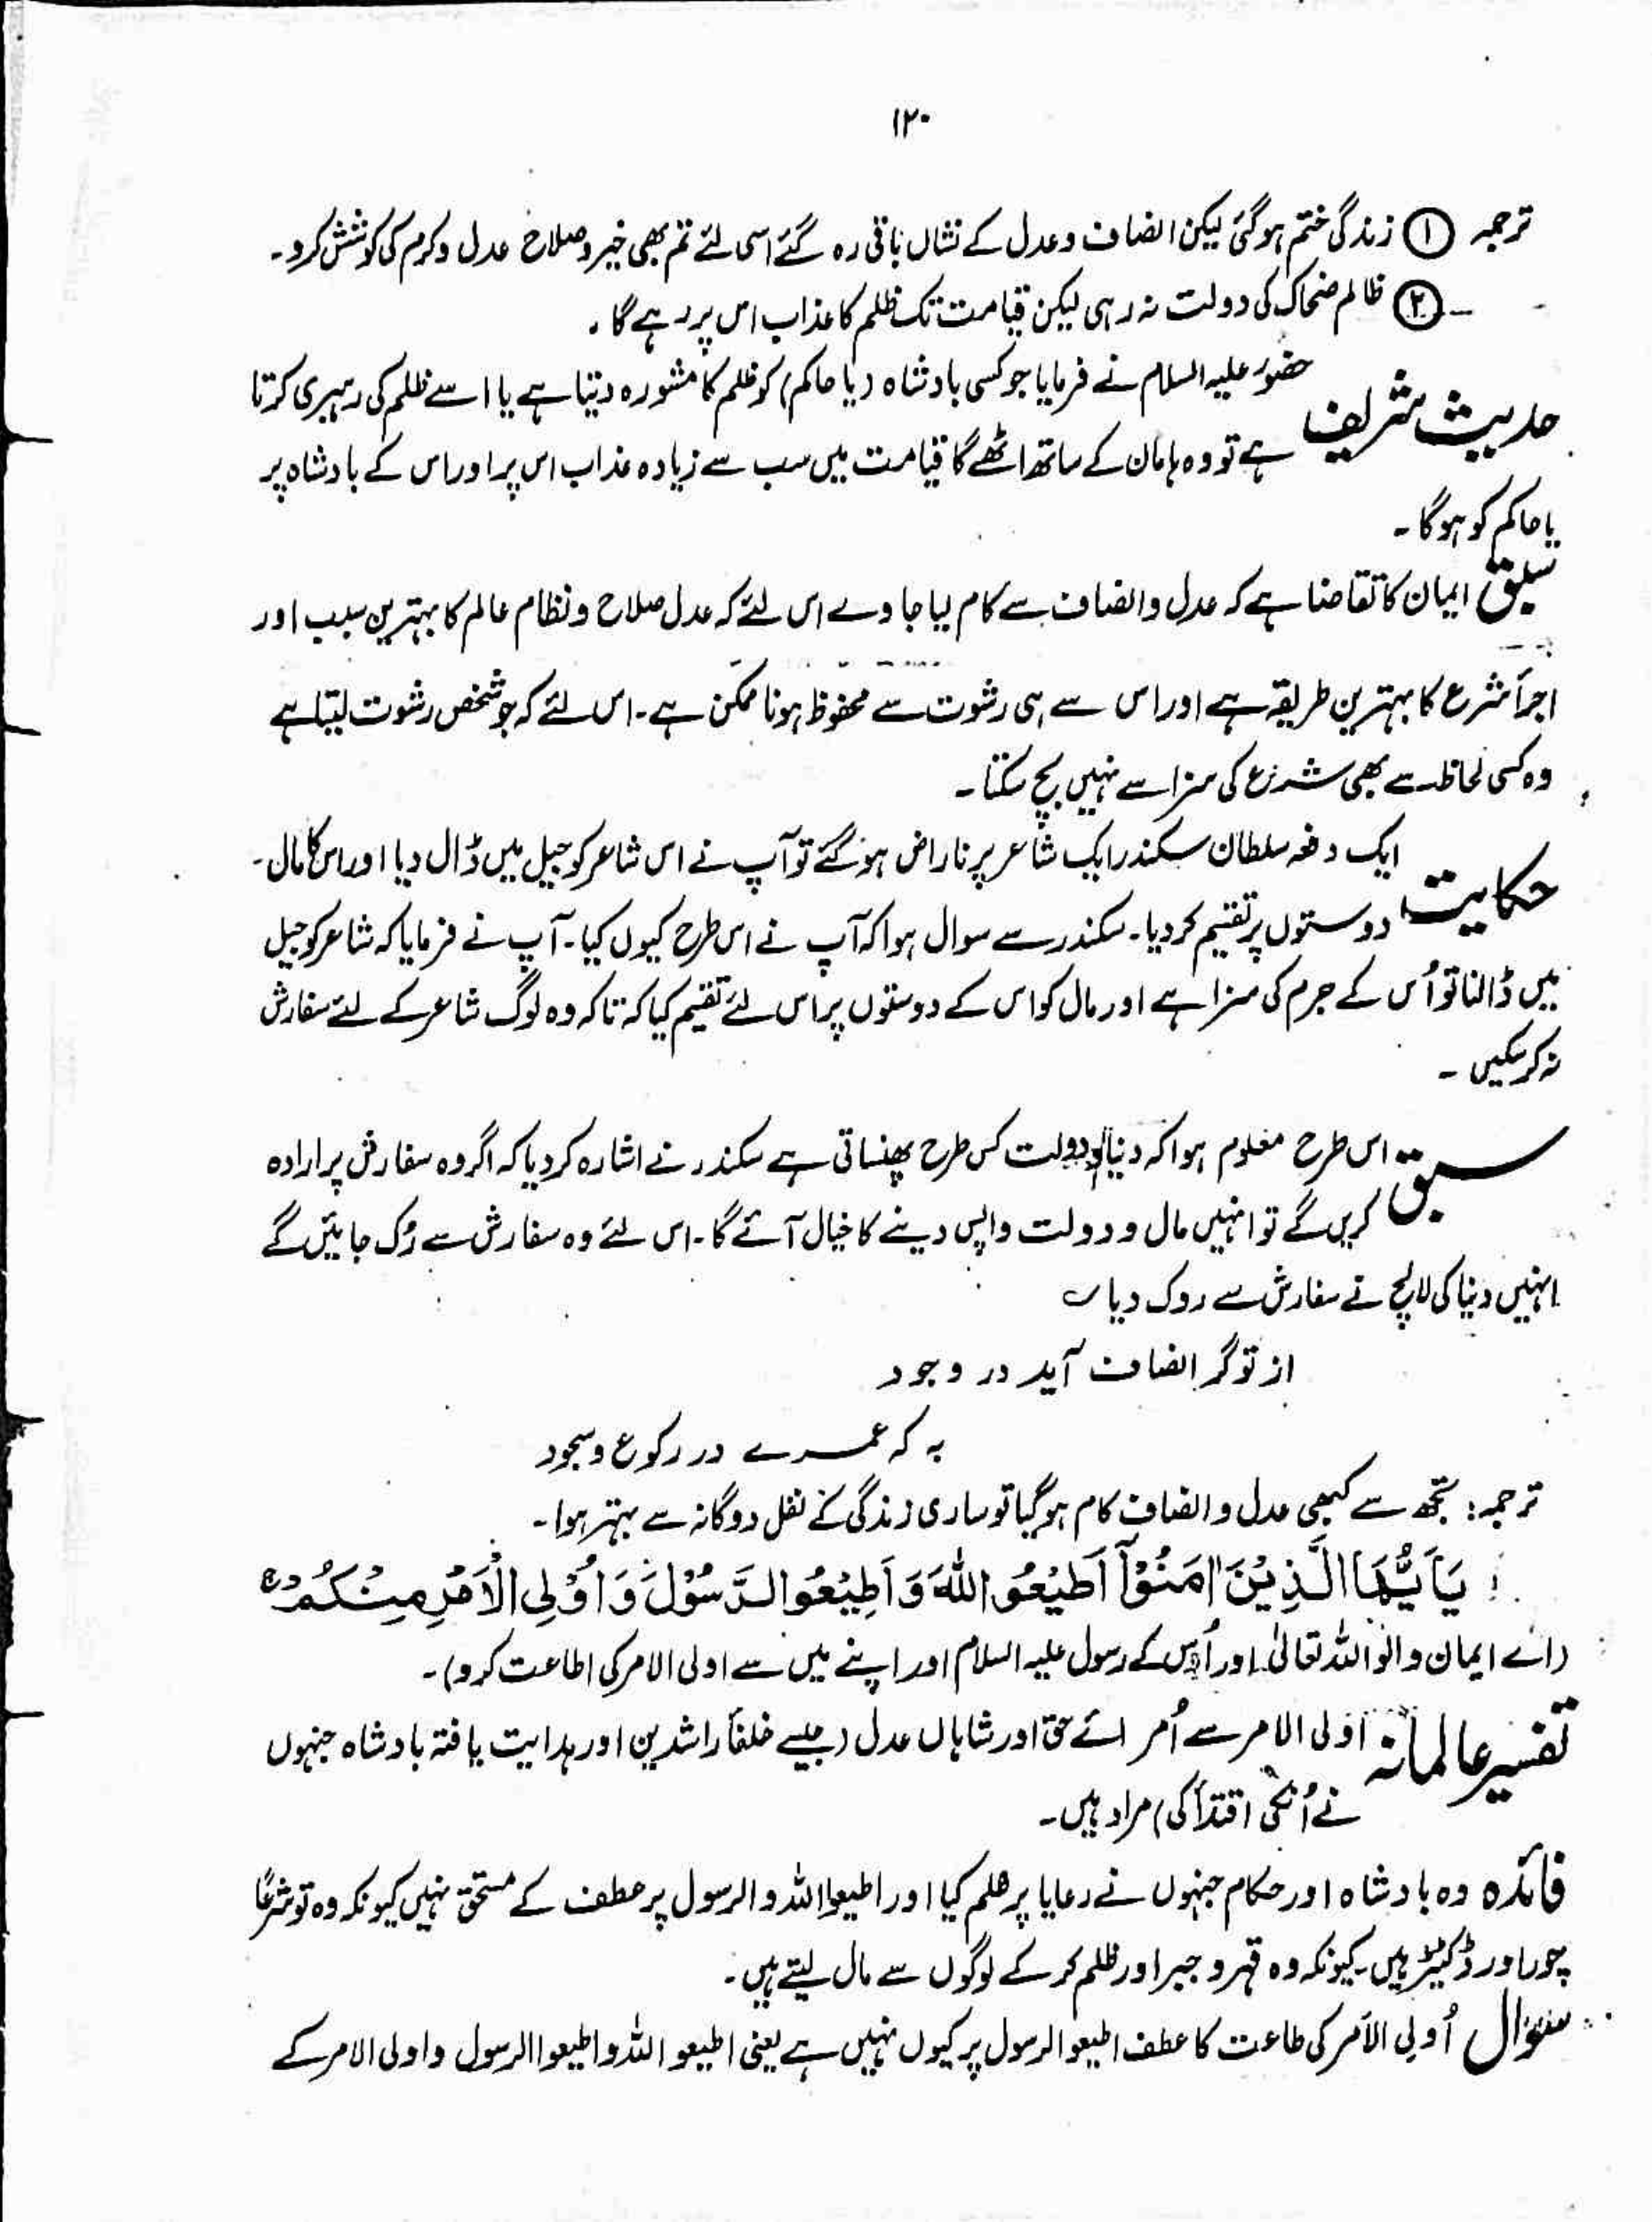 ۱۲۰
ترجمہ ① زندگی ختم ہوگئی لیکن انصاف وعدل کے نشاں باقی رہ گئے اسی لئے تم بھی خیر وصلاح عدل وکرم کی کوشش کرو۔
② ظالم ضحاک کی دولت نہ رہی لیکن قیامت تک ظلم کا عذاب اس پر رہے گا۔
حدیث شریف حضور علیہ السلام نے فرمایا جو کسی بادشاہ (یا حاکم) کو ظلم کا مشورہ دیتا ہے یا اسے ظلم کی رہبری کرتا
ہے تو وہ ہامان کے ساتھ اٹھے گا قیامت میں سب سے زیادہ عذاب اس پر اور اس کے بادشاہ پر
یا حاکم کو ہوگا۔
سبق ایمان کا تقاضا ہے کہ عدل وانصاف سے کام لیا جاوے اس لئے کہ عدل صلاح ونظام عالم کا بہترین سبب اور
اجرأ شرع کا بہترین طریقہ ہے اور اس سے ہی رشوت سے محفوظ ہونا ممکن ہے۔ اس لئے کہ جو شخص رشوت لیتا ہے
وہ کسی لحاظ سے بھی شرع کی سزا سے نہیں بچ سکتا۔
حکایت ایک دفعہ سلطان سکندر ایک شاعر پر ناراض ہوگئے تو آپ نے اس شاعر کو جیل میں ڈال دیا اور اس کا مال۔
دوستوں پر تقسیم کردیا۔ سکندر سے سوال ہوا کہ آپ نے اس طرح کیوں کیا۔ آپ نے فرمایا کہ شاعر کو جیل
میں ڈالنا تو اُس کے جرم کی سزا ہے اور مال کو اس کے دوستوں پر اس لئے تقسیم کیا کہ تاکہ وہ لوگ شاعر کے لئے سفارش
نہ کرسکیں۔
سبق اس طرح معلوم ہوا کہ دنیا ودولت کس طرح پھنساتی ہے سکندر نے اشارہ کردیا کہ اگر وہ سفارش پر ارادہ
کریں گے تو انہیں مال ودولت واپس دینے کا خیال آئے گا۔ اس لئے وہ سفارش سے رُک جائیں گے
انہیں دنیا کی لالچ نے سفارش سے روک دیا ؎
از تو گر انصاف آید در وجود
بہ کہ عمرے در رکوع وسجود
ترجمہ: تجھ سے کبھی عدل وانصاف کام ہوگیا تو ساری زندگی کے نفل دوگانہ سے بہتر ہوا۔
یَآَیُّهَا الَّذِیْنَ اٰمَنُوْٓا اَطِیْعُوا اللّٰهَ وَاَطِیْعُوا الرَّسُوْلَ وَاُوْلِی الْاَمْرِ مِنْکُمْ ۚ
(اے ایمان والو اللہ تعالیٰ اور اُس کے رسول علیہ السلام اور اپنے میں سے اولی الامر کی اطاعت کرو)۔
تفسیر عالمانہ اولی الامر سے اُمرائے حق اور شاہاں عدل (جیسے خلفأ راشدین اور ہدایت یافتہ بادشاہ جنہوں
نے اُنکی اقتدأ کی) مراد ہیں۔
فائدہ وہ بادشاہ اور حکام جنہوں نے رعایا پر ظلم کیا اور اطیعوا اللہ والرسول پر عطف کے مستحق نہیں کیونکہ وہ تو شرعًا
چور اور ڈکیٹر ہیں۔ کیونکہ وہ قہر و جبر اور ظلم کرکے لوگوں سے مال لیتے ہیں۔
سوال اُولی الأمر کی طاعت کا عطف اطیعو الرسول پر کیوں نہیں ہے یعنی اطیعو اللہ واطیعوا الرسول واولی الامر کے